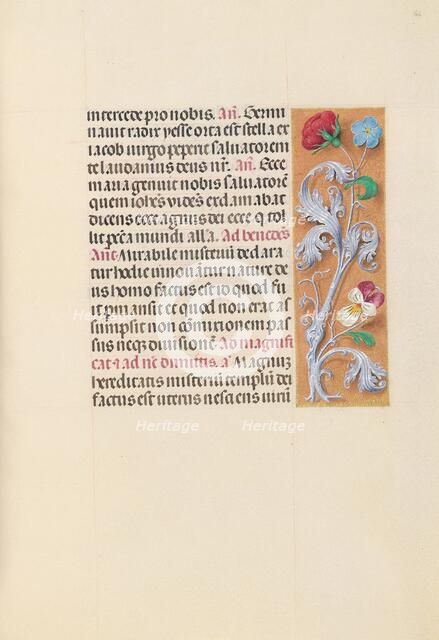 intercede pro nobis. Añ. Germi
nauit radix yesse orta est stella ex
iacob uirgo peperit saluatorem
te laudamus deus nr̄. Añ. Ecce
maria genuit nobis saluatorē
quem ioh̄es vidēs exclamabat
dicens ecce agnus dei ecce q̄ tol
lit pc̄ta mundi all'a. Ad benedēs
Añt. Mirabile misteriū declara
tur hodie innouātur nature de
us homo factus est id quod fu
it permansit et quod non erat as
sumpsit non cōmixtionem pas
sus neq̄ diuisionē. Ad magnifi
cat et ad nc̄ dimittis. a. Magnū
hereditatis misteriū templū dei
factus est uterus nesciens uirū
Heritage
Heritage
Heritage
Heritage
Heritage
Heritage